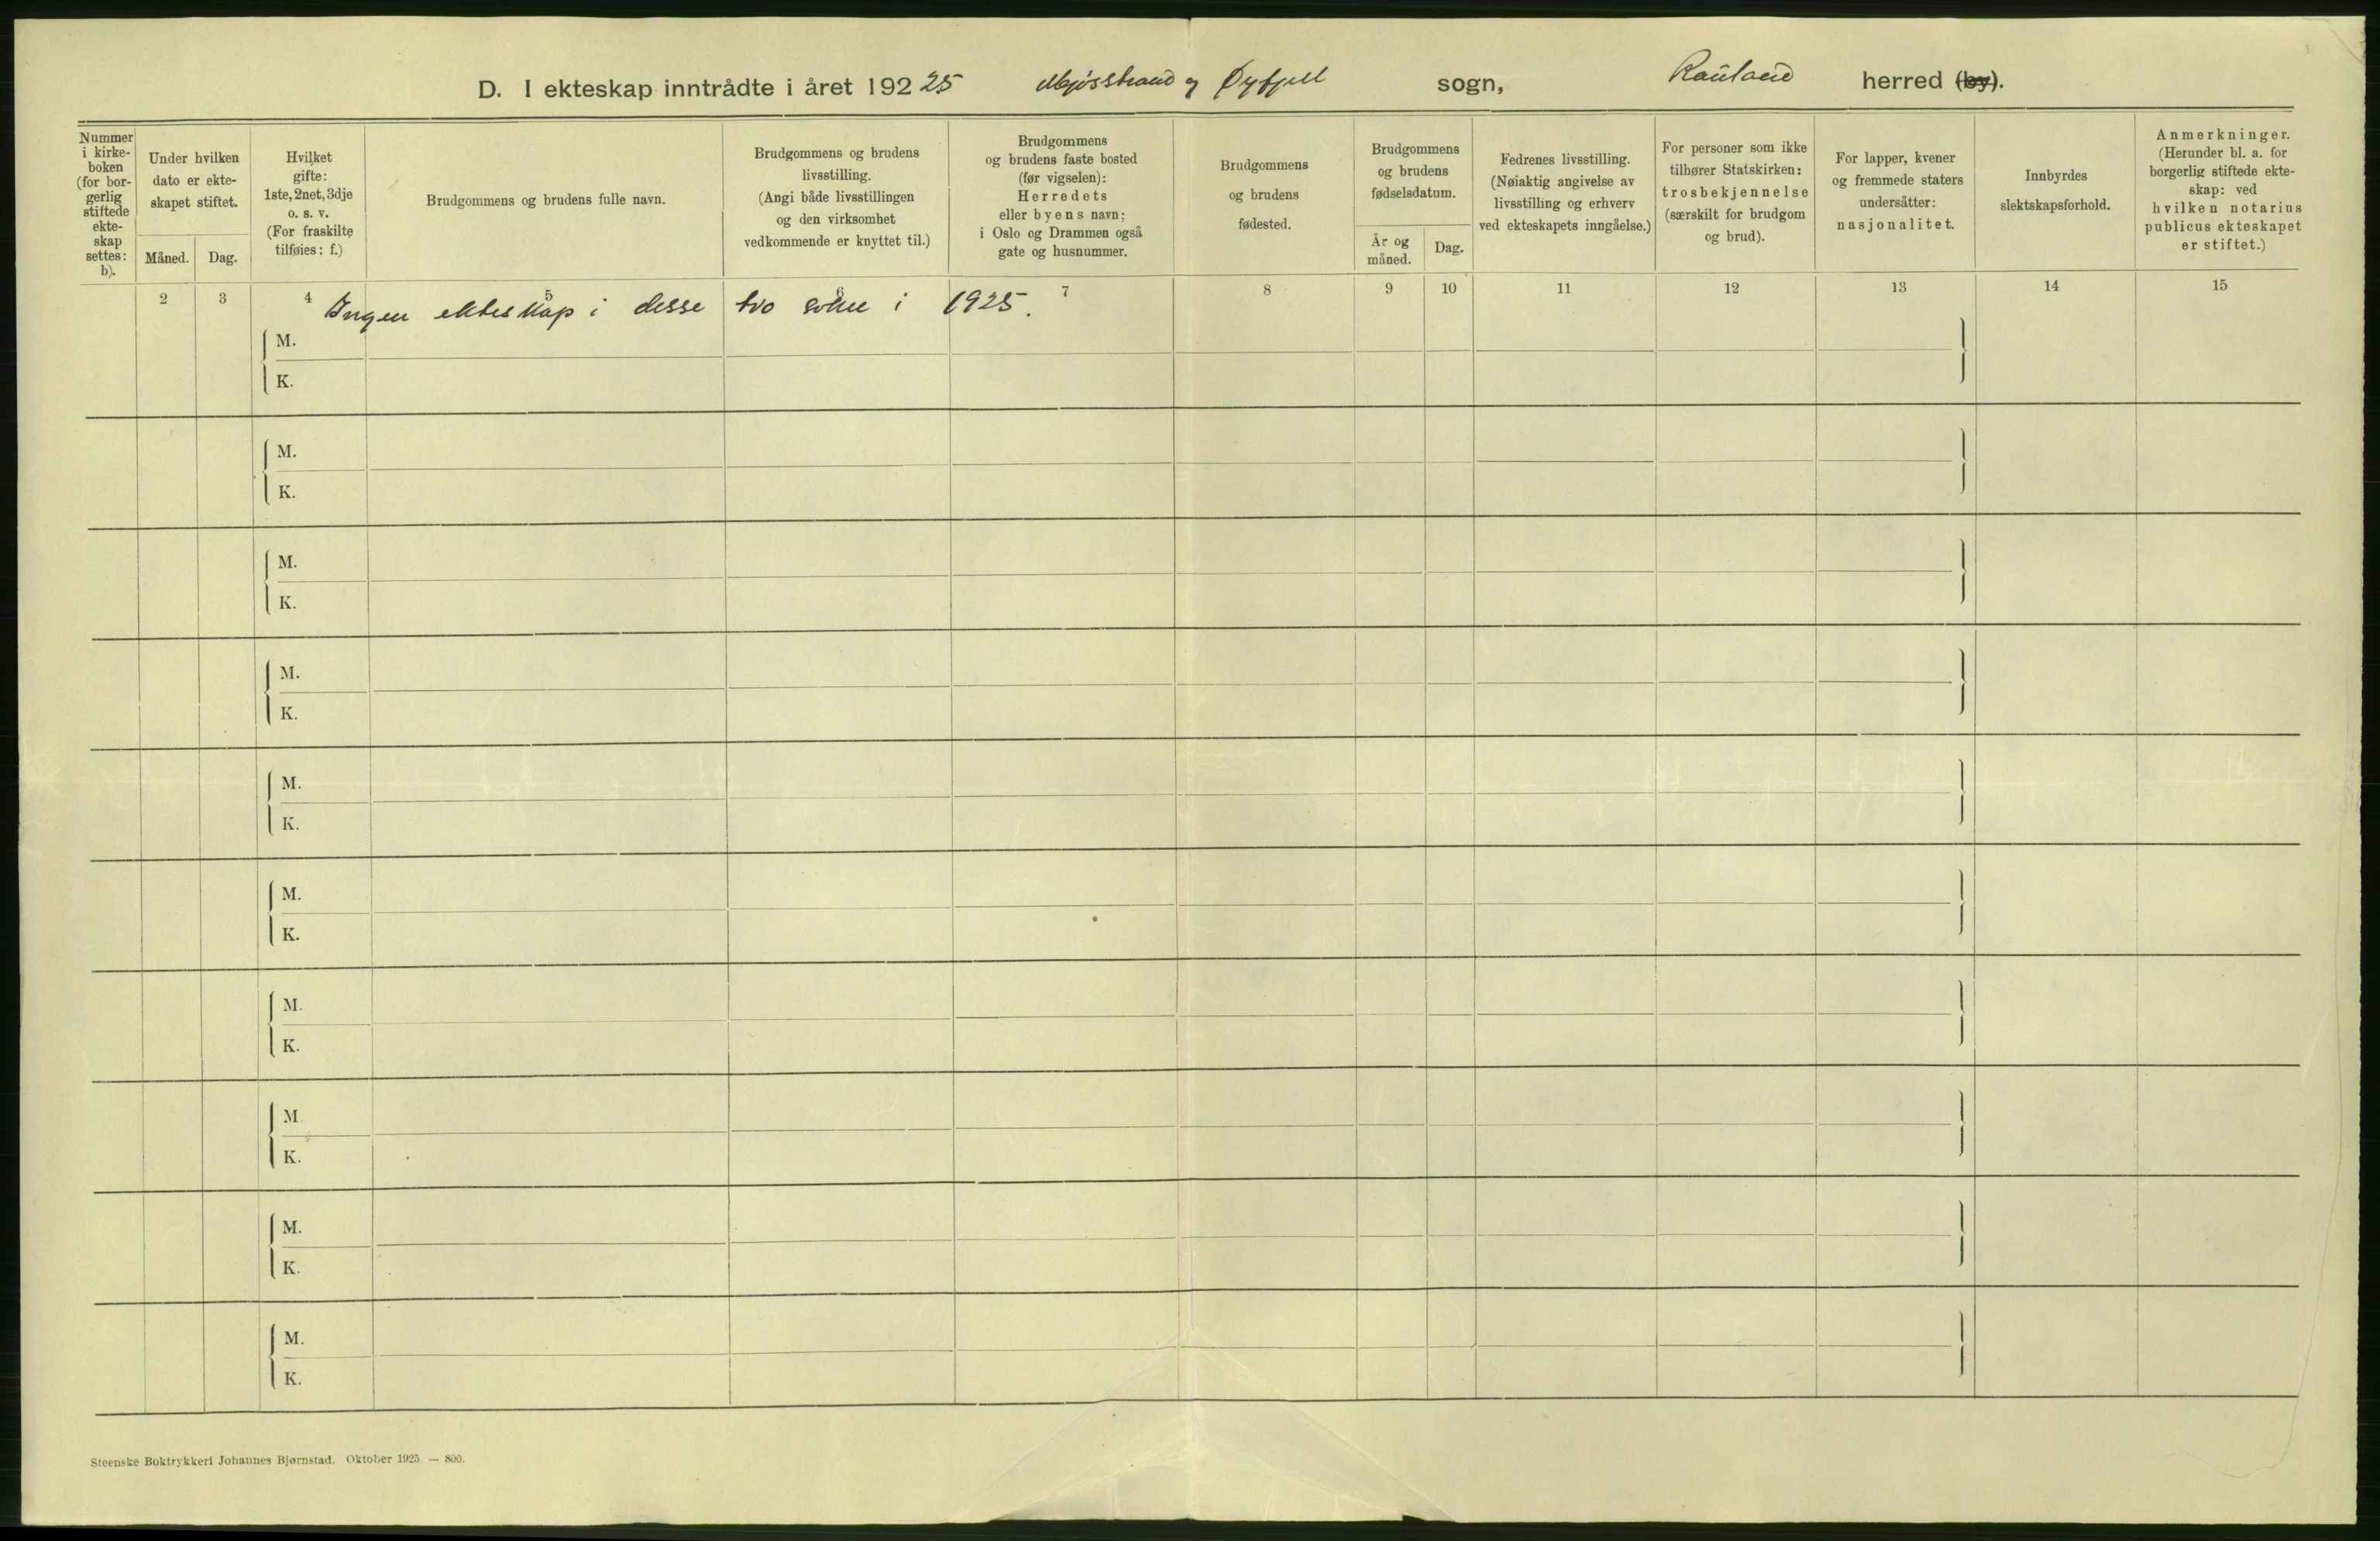 D. I ekteskap inntrådte i året 192 25 Mjøsstrand og Øyfjell sogn, Rauland herred (by).
Nummer
i kirke-
boken
(for bor-
gerlig
stiftede
ekte-
skap
settes:
b).
Under hvilken
dato er ekte-
skapet stiftet.
Måned. Dag.
Hvilket
gifte:
1ste, 2net, 3dje
o. s. v.
(For fraskilte
tilføies: f.)
Brudgommens og brudens fulle navn.
Brudgommens og brudens
livsstilling.
(Angi både livsstillingen
og den virksomhet
vedkommende er knyttet til.)
Brudgommens
og brudens faste bosted
(før vigselen):
Herredets
eller byens navn;
i Oslo og Drammen også
gate og husnummer.
Brudgommens
og brudens
fødested.
Brudgommens
og brudens
fødselsdatum.
År og
måned.
Dag.
Fedrenes livsstilling.
(Nøiaktig angivelse av
livsstilling og erhverv
ved ekteskapets inngåelse.)
For personer som ikke
tilhører Statskirken:
trosbekjennelse
(særskilt for brudgom
og brud).
For lapper, kvener
og fremmede staters
undersåtter:
nasjonalitet.
Innbyrdes
slektskapsforhold.
Anmerkninger.
(Herunder bl. a. for
borgerlig stiftede ekte-
skap: ved
hvilken notarius
publicus ekteskapet
er stiftet.)
2 3 4 5 6 7 8 9 10 11 12 13 14 15
Ingen ekteskap i desse tvo sokne i 1925.
M.
K.
M.
K.
M.
K.
M.
K.
M.
K.
M.
K.
M.
K.
M.
K.
M.
K.
M.
K.
Steenske Boktrykkeri Johannes Bjørnstad. Oktober 1925. — 800.